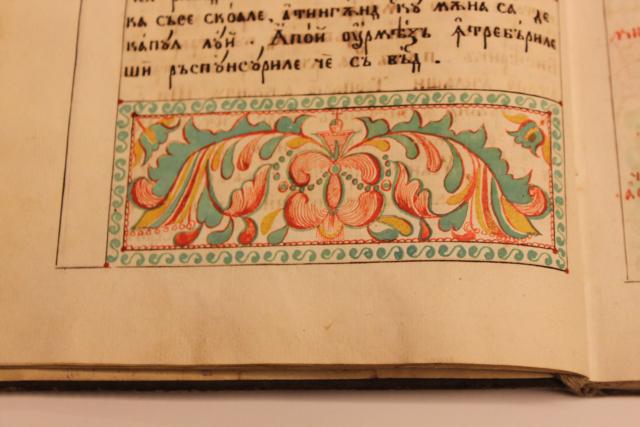 ка съсе скоале, ꙟтингѫнд кꙋ мѫна са де
капꙋл лꙋй. Апой оурмѣзъ ꙟтребъриле
ши ръспꙋнсꙋриле че съ вѣд.